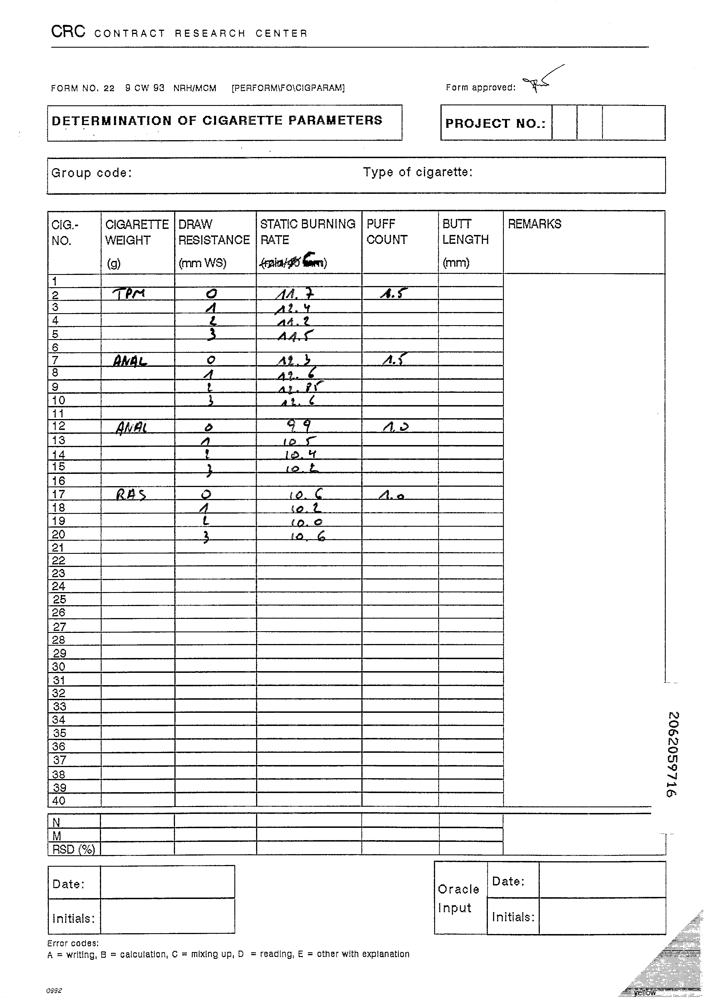 CRC CONTRACT RESEARCH CENTER
FORM NO. 22 9 CW 93 NRH/MCM [PERFORM\FO\CIGPARAM] Form approved:
DETERMINATION OF CIGARETTE PARAMETERS PROJECT NO.:
Group code: Type of cigarette:
CIG.- CIGARETTE DRAW STATIC BURNING PUFF BUTT REMARKS
NO. WEIGHT RESISTANCE RATE COUNT LENGTH
(g) (mm WS) (mm)
1
2 TPM 0 11.7 1.5
3 1 12.4
4 2 11.2
5 3 11.5
6
7 ANAL 0 12.3 1.5
8 1 12.6
9 2 12.85
10 3 12.6
11
12 ANAL 0 9.9 1.0
13 1 10.5
14 2 10.4
15 3 10.2
16
17 RAS 0 10.6 1.0
18 1 10.2
19 2 10.0
20 3 10.6
21
22
23
24
25
26
27
28
29
30
31
32
33
34
35
36
37
38
39
40
2062059716
N
M
RSD (%)
Date: Oracle Date:
Initials: Input Initials:
Error codes:
A = writing, B = calculation, C = mixing up, D = reading, E = other with explanation
0992
yellow